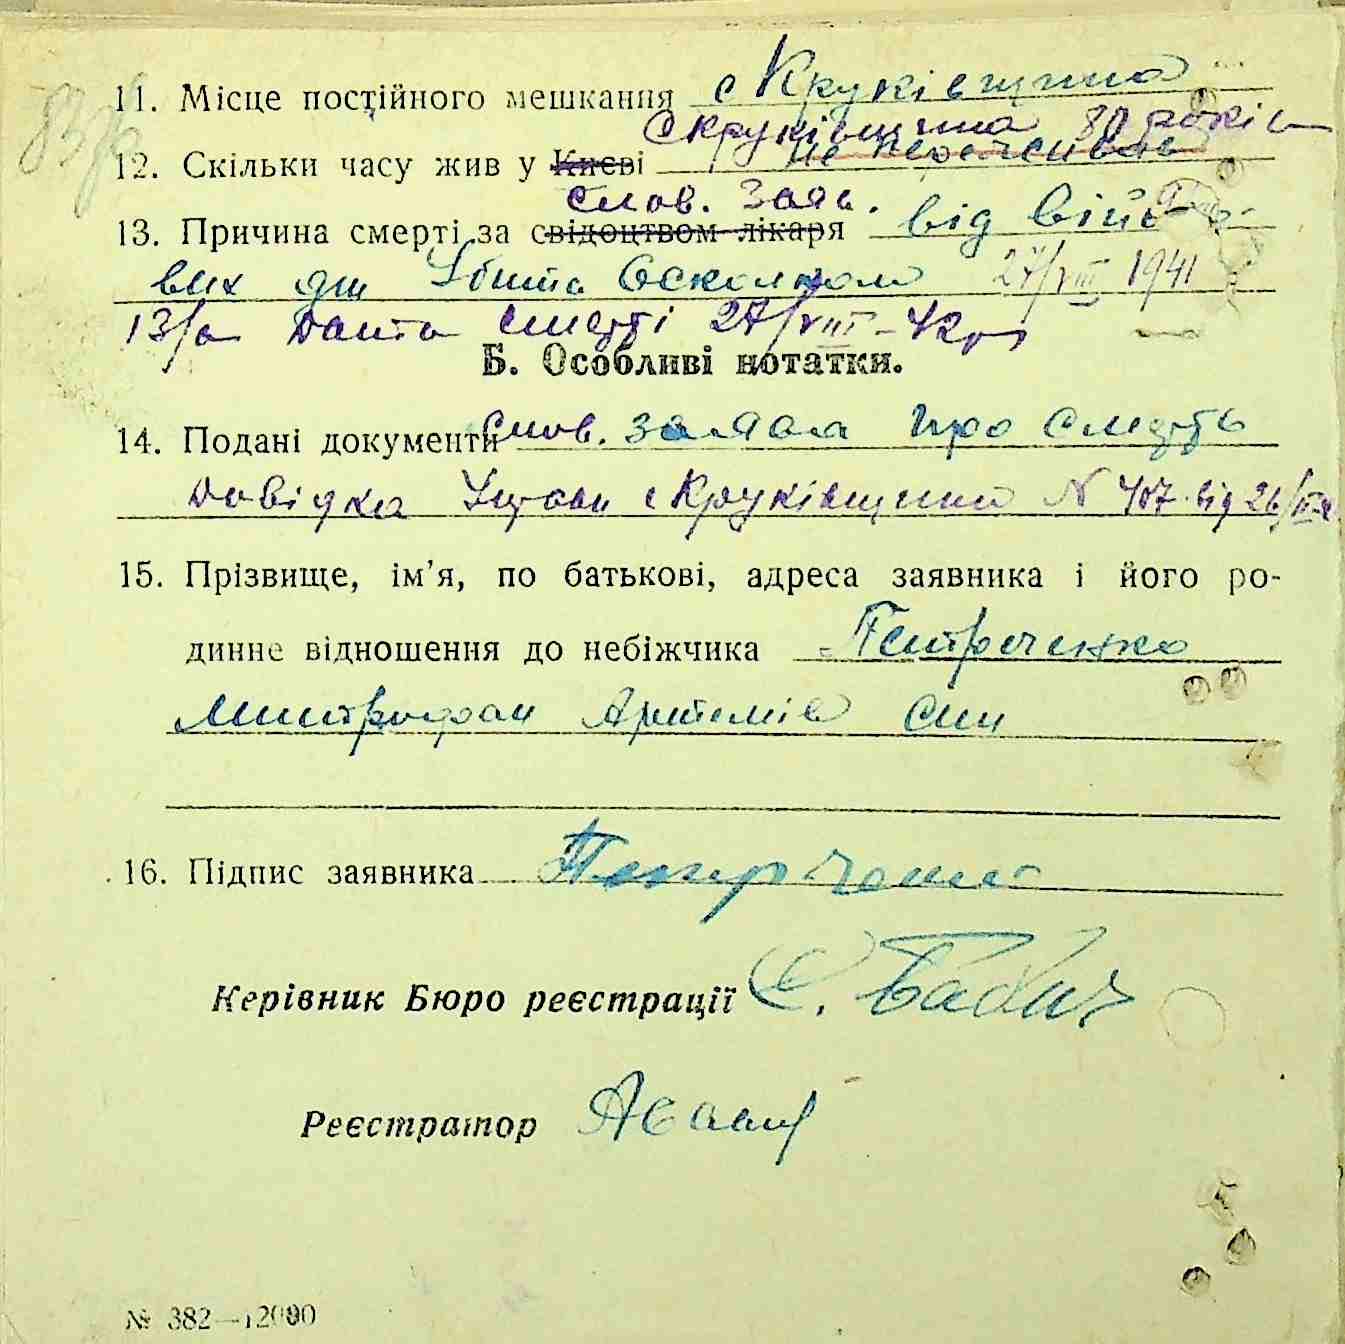 11. Місце постійного мешкання с Круківщина
с Круківщина 80 років
12. Скільки часу жив у Києві не проживав
Слов. Заяв.
13. Причина смерті за свідоцтвом лікаря від війсь-
вих дій Убита Осколком 27/VIII 1941
13/а Дата смерті 27/VIII-42р
Б. Особливі нотатки.
14. Подані документи Слов. заява про смерть
Довідка Управи с Круківщини N 407 від 26/
15. Прізвище, ім’я, по батькові, адреса заявника і його ро-
динне відношення до небіжчика Петрченко
Митрофан Артемів син
16. Підпис заявника Петрченко
Керівник Бюро реєстрації С. Бабич
Реєстратор
№ 382—12000